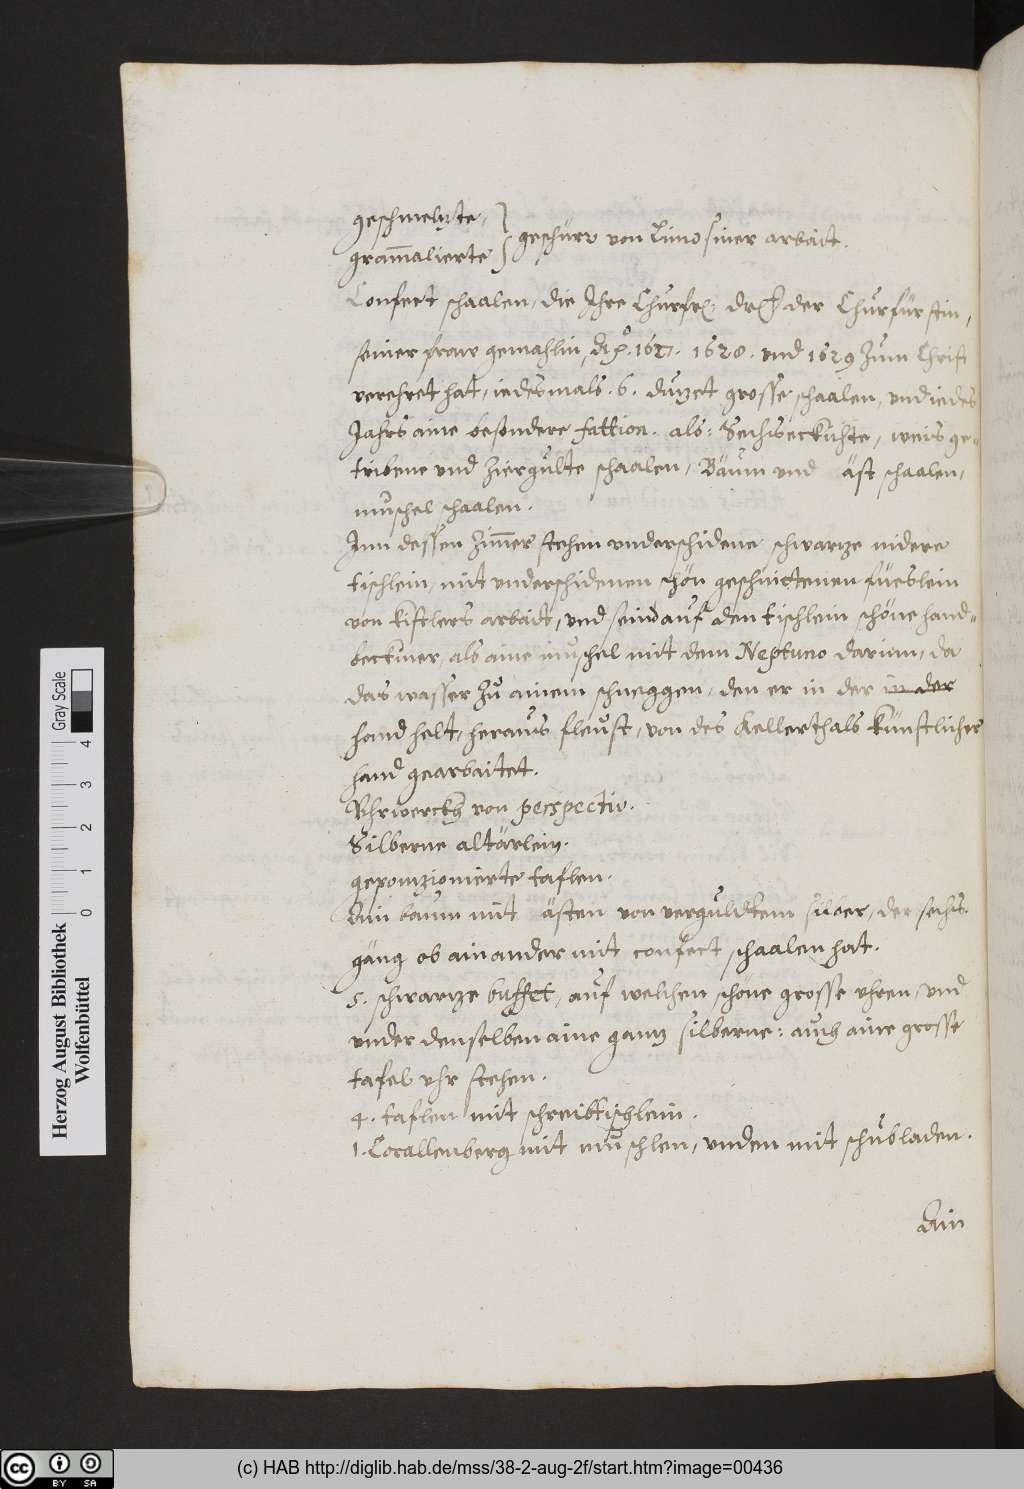 geschmelzte,
gram̄alierte } geschürr von Limosiner arbait.
Confect schaalen, die Ihre Churfr. drlt. der Churfürstin,
seiner fraw gemahlin, Ao. 1627. 1628. vnd 1629 zum Christ
verehret hat, iedesmals. 6. duzet grosse schaalen, vnd iedes
Jahrs aine besondere fattion. als: Sechseckichte, weis ge-
tribene vnd ziergulte schaalen, Bäum vnd äst schaalen,
muschel schaalen.
Inn dessen Zim̄er stehen vnderschidene schwarze nidere
tischlein, mit vnderschidenen schön geschnittenen füeslein
von kistlers arbait, vnd seind auf den tischlein schöne hand-
beckhner, als aine muschel mit dem Neptuno darinn, da
das wasser zu ainem schneggen, den er in der in der
hand helt, heraus fleust, von des Kellerthals künstlicher
hand gearbaitet.
Vhrwerckh von perspectiv.
Silberne altärlein.
geponzionierte taflen.
Ain baum mit ästen von verguldtem silber, der sechs.
gäng ob ainander mit confect schaalen hat.
5. schwarze buffet, auf welchen schöne grosse vhren, vnd
vnder denselben aine ganz silberne: auch aine grosse
tafel vhr stehen.
4. taflen mit schreibtischlein.
1. Corallenberg mit muschlen, vnden mit schubladen.
Ain
Herzog August Bibliothek
Wolfenbüttel
0 1 2 3 4
Gray Scale
cc BY SA
(c) HAB http://diglib.hab.de/mss/38-2-aug-2f/start.htm?image=00436